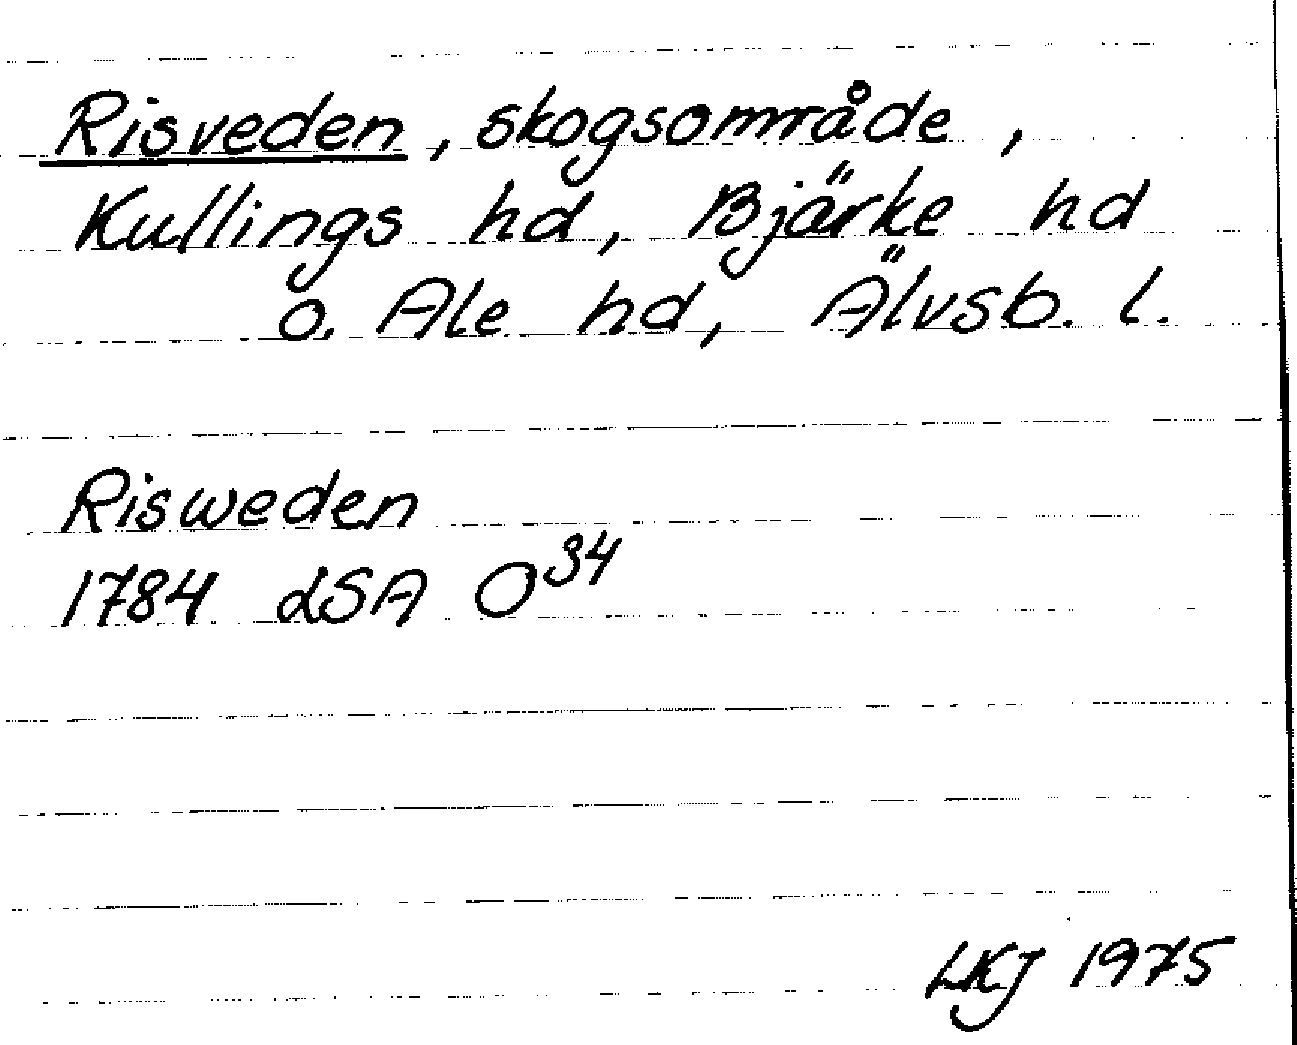 Risveden, skogsområde,
Kullings hd, Bjärke hd
o. Ale hd, Älvsb. l.
Risweden
1784 LSA O³⁴
LKJ 1975